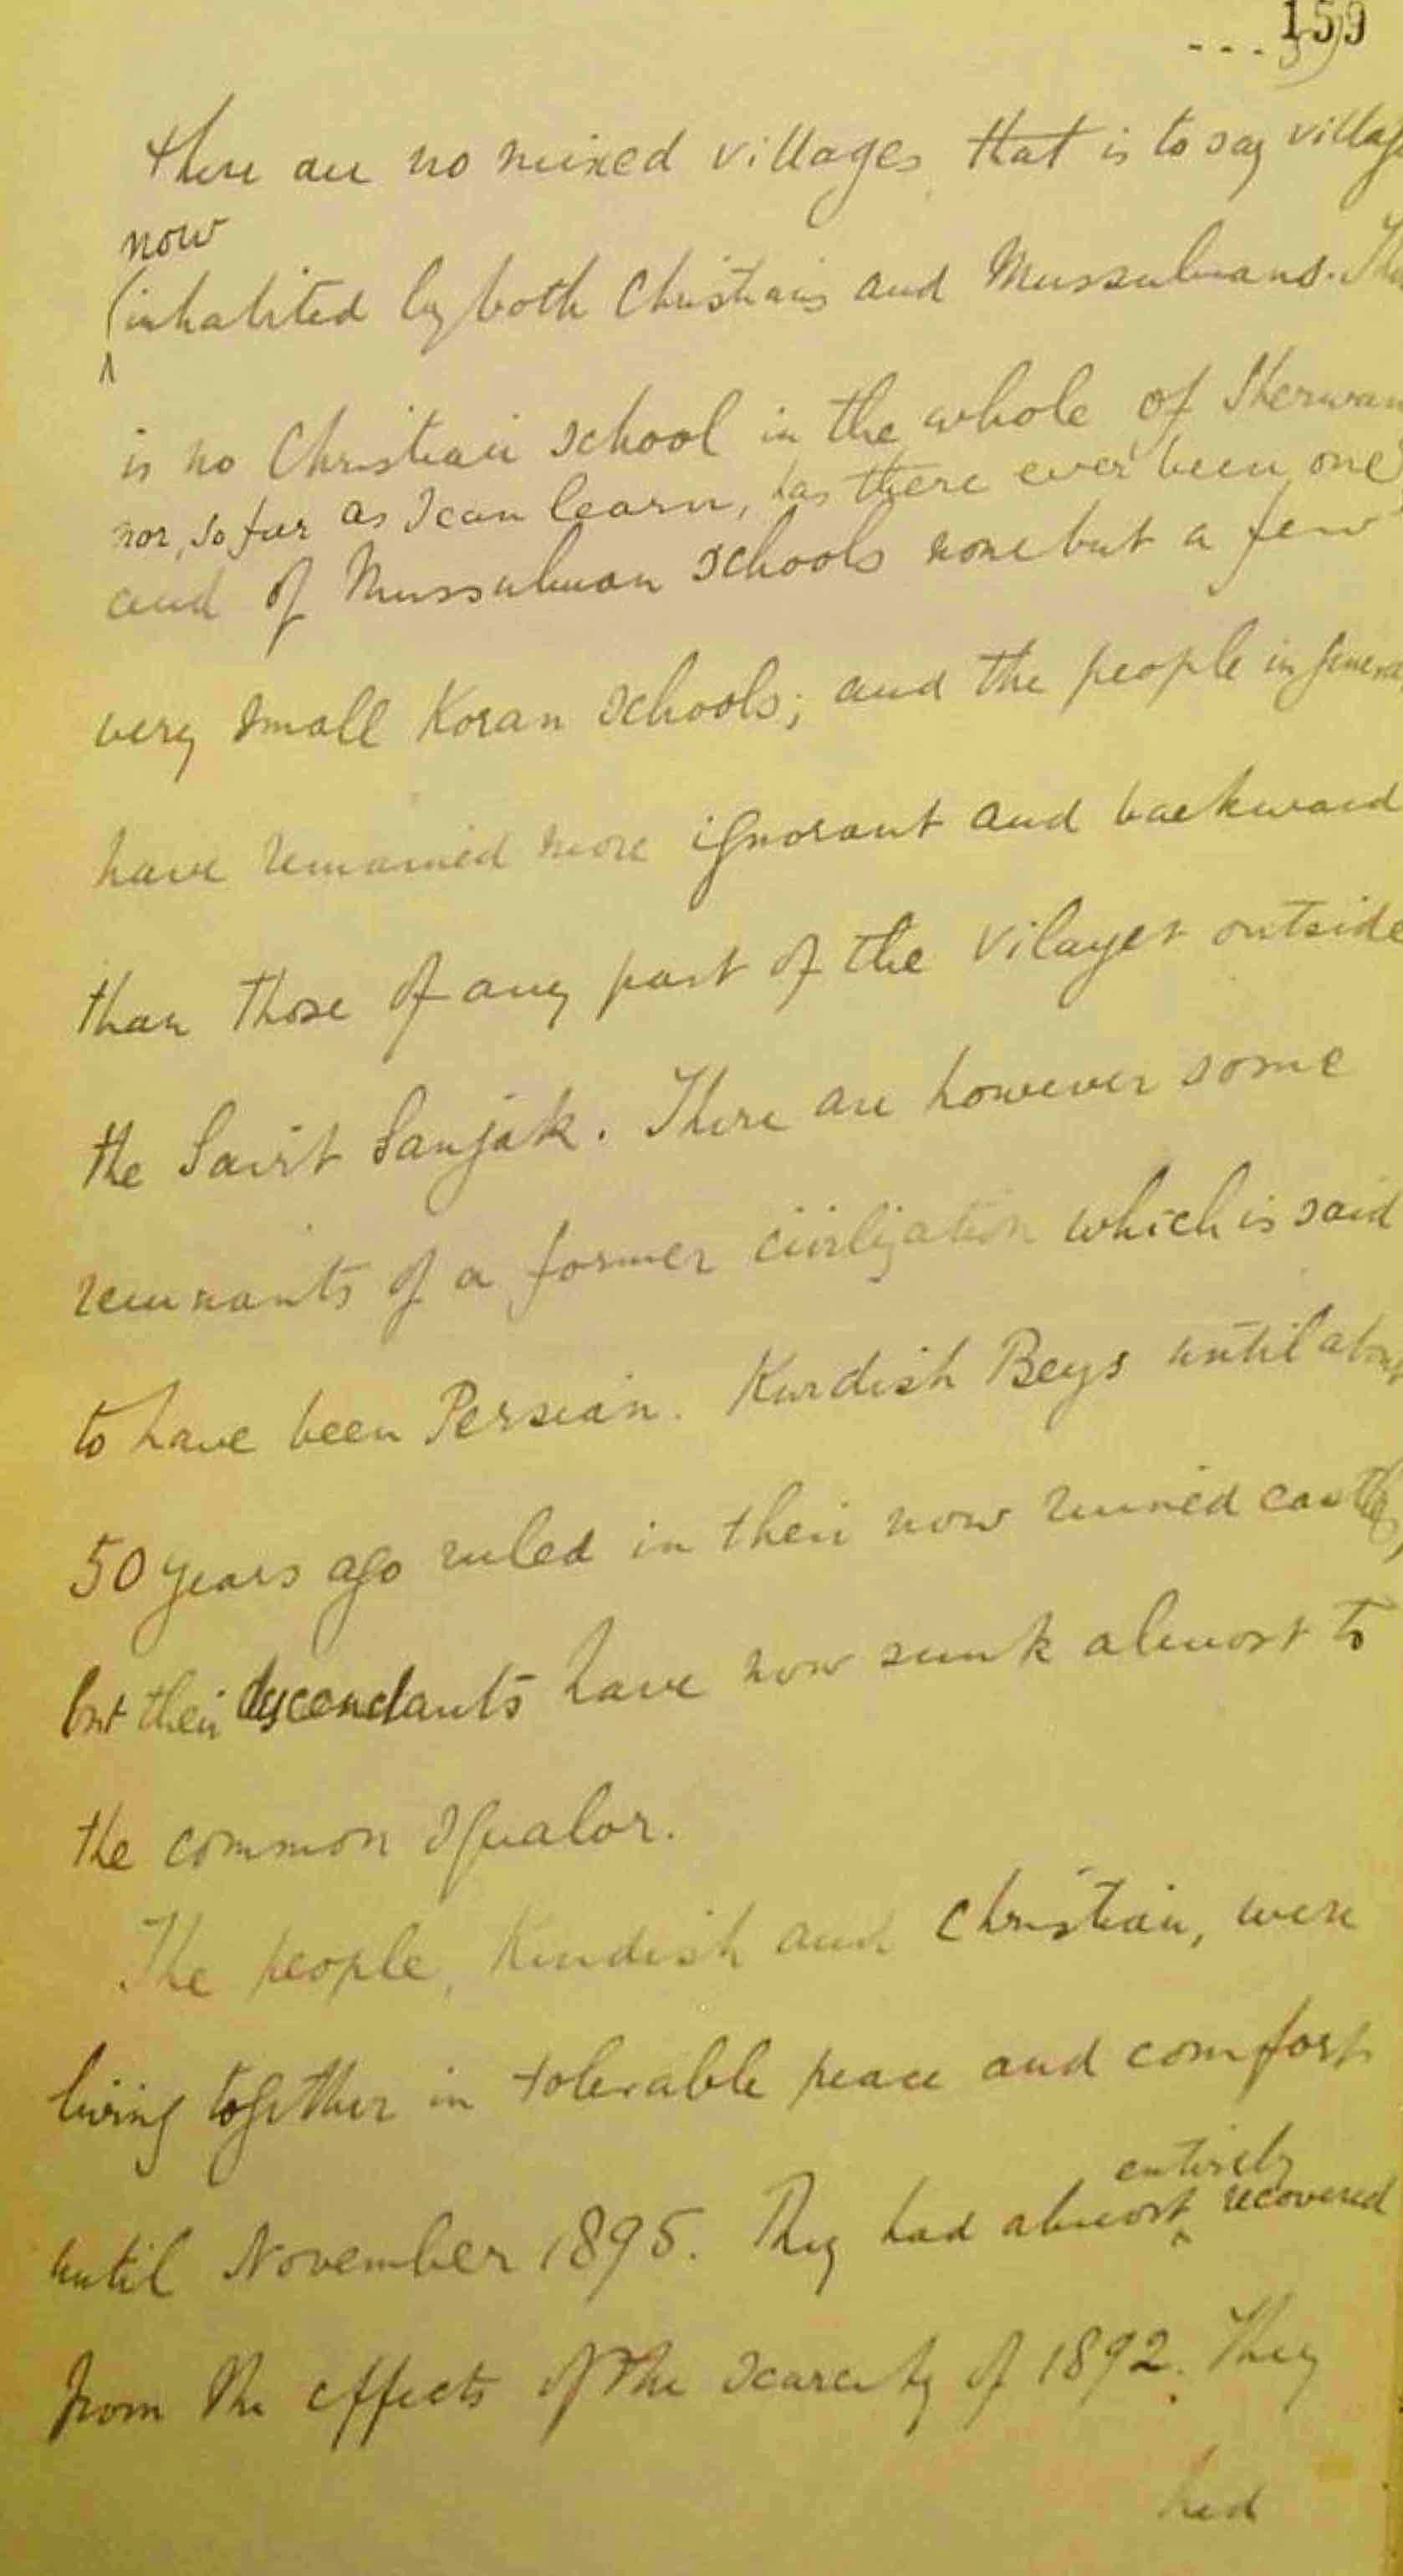 159
there are no mixed villages, that is to say villag
now
inhabited by both Christians and Mussulmans. The
is no Christian school in the whole of Sherwan
nor, so far as I can learn, has there ever been one,
and of Mussulman schools none but a few
very small Koran schools; and the people in general
have remained more ignorant and backward
than those of any part of the vilayet outside
the Sairt Sanjak. There are however some
remnants of a former civilization which is said
to have been Persian. Kurdish Beys until about
50 years ago ruled in their now ruined castles,
but their descendants have now sunk almost to
the common squalor.
The people, Kurdish and Christian, were
living together in tolerable peace and comfort
until November 1895. They had almost entirely recovered
from the effects of the scarcity of 1892. They
had